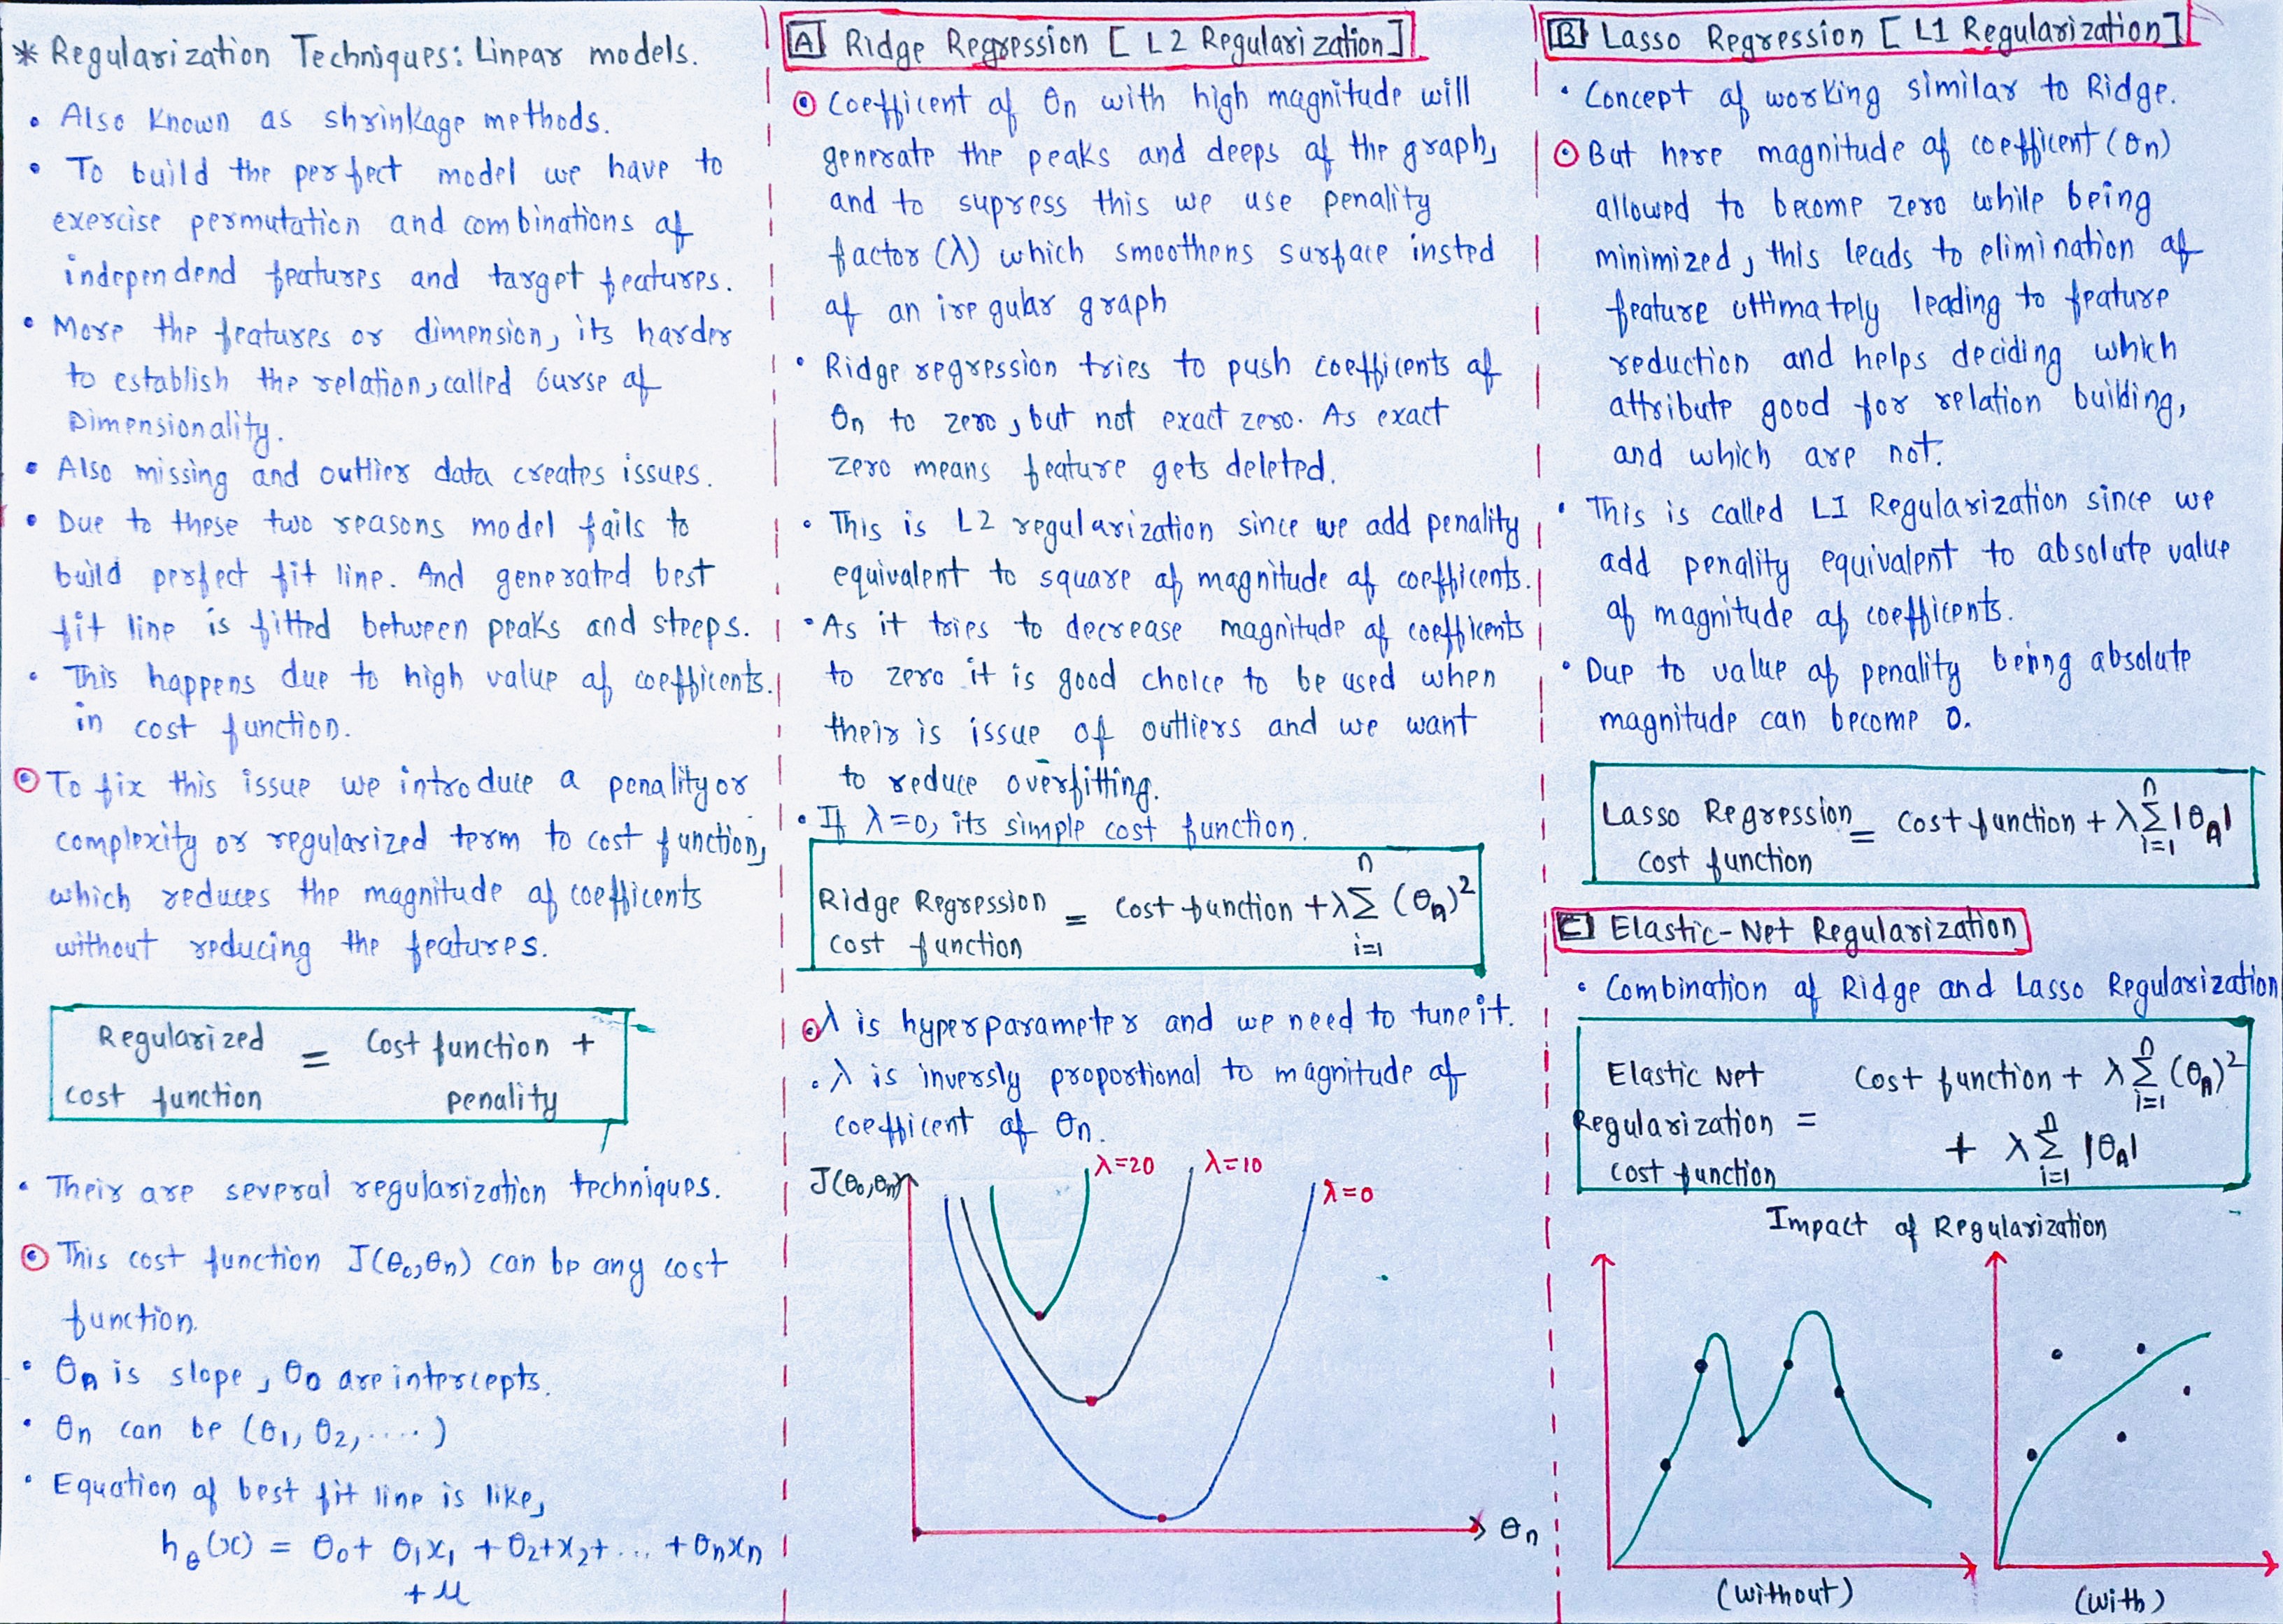 * Regularization Techniques: Linear models.
• Also Known as shrinkage methods.
• To build the perfect model we have to
exercise permutation and combinations of
independend features and target features.
• More the features or dimension, its harder
to establish the relation, called Curse of
Dimensionality.
• Also missing and outlier data creates issues.
• Due to these two reasons model fails to
build perfect fit line. And generated best
fit line is fitted between peaks and steeps.
• This happens due to high value of coefficents.
in cost function.
⊙ To fix this issue we introduce a penality or
complexity or regularized term to cost function,
which reduces the magnitude of coefficents
without reducing the features.
Regularized = Cost function +
cost function penality
• Their are several regularization techniques.
⊙ This cost function J(θ₀,θn) can be any cost
function.
• θn is slope, θ0 are intercepts.
• θn can be (θ1, θ2, ....)
• Equation of best fit line is like,
hθ(x) = θ0+ θ1x1 +θ2+x2+... +θnxn
+ μ
A Ridge Regression [ L2 Regularization]
⊙ Coefficent of θn with high magnitude will
generate the peaks and deeps of the graph,
and to supress this we use penality
factor (λ) which smoothens surface insted
of an iregular graph
• Ridge regression tries to push coefficents of
θn to zero, but not exact zero. As exact
zero means feature gets deleted.
• This is L2 regularization since we add penality
equivalent to square of magnitude of coefficents.
• As it tries to decrease magnitude of coefficents
to zero it is good choice to be used when
their is issue of outliers and we want
to reduce overfitting.
• If λ=0, its simple cost function.
Ridge Regression = Cost function + λ n Σ i=1 (θn)²
cost function
⊙ λ is hyperparameter and we need to tune it.
• λ is inversly proportional to magnitude of
coefficent of θn.
J(θ₀,θn)
λ=20
λ=10
λ=0
θn
B Lasso Regression [ L1 Regularization]
• Concept of working similar to Ridge.
⊙ But here magnitude of coefficent (θn)
allowed to become zero while being
minimized, this leads to elimination of
feature ultimately leading to feature
reduction and helps deciding which
attribute good for relation building,
and which are not.
• This is called L1 Regularization since we
add penality equivalent to absolute value
of magnitude of coefficents.
• Due to value of penality being absolute
magnitude can become 0.
Lasso Regression = Cost function + λ n Σ i=1 |θn|
cost function
C Elastic-Net Regularization
• Combination of Ridge and Lasso Regularization
Elastic Net Cost function + λ n Σ i=1 (θn)²
Regularization =
cost function + λ n Σ i=1 |θn|
Impact of Regularization
(without)
(with)